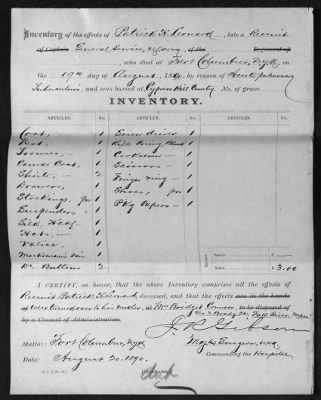 Inventory of the effects of Patrick H. Leonard, late a Recruit
of Captain General Service, Infantry of the Regiment of
, who died at Fort Columbus, N.Y.H.
the 19th day of August, 1890, by reason of Acute pulmonary
Tuberculosis, and was buried at Cypress Hill Cemetery No. of grave
INVENTORY.
ARTICLES. No. ARTICLES. No.
Coat, 1 Screw driver 1
Vest, 1 1
Trowsers, 1 Corkscrew 1
Canvas Coat, 1 Scissors 1
Shirts, 2 Finger ring 1
Drawers, 1 Shoes, pr 1
Stockings, pr 1 Pkg Papers 1
Suspenders 1
Silk Hdkf 1
Hats 1
Valise, 1
Marksman's Pin 1
Buttons 2 3.00
I CERTIFY, on honor, that the above Inventory comprises all the effects of
Recruit Patrick H. Leonard, deceased, and that the effects are in the hands
of were turned over to his mother, Mrs Bridget Connor, to be disposed of
by a Council of Administration. Brady St., Fall River, Mass.
J. R. Gibson
Station: Fort Columbus, N.Y.H. Major & Surgeon, U.S.A.
Date: August 20. 1890. Commanding the Hospital